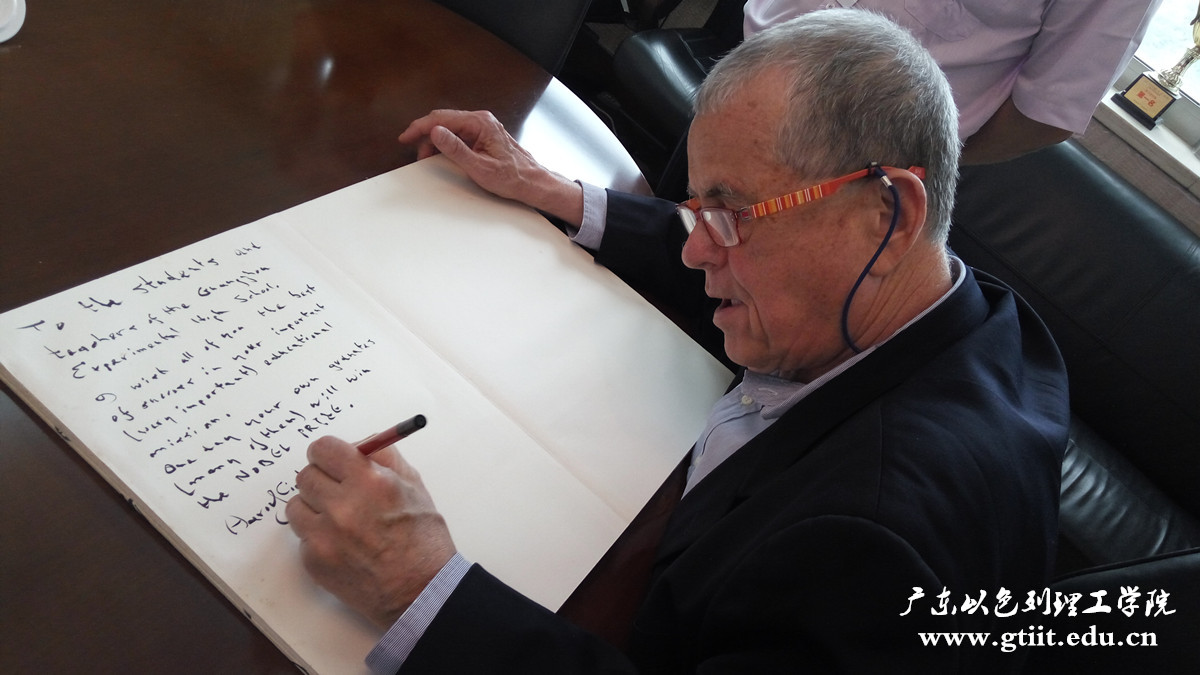 To the students and
teachers of the Guangzhou
Experimental High School.
I wish all of you the best
of success in your important
(very important) educational
mission.
One day your own graduates
(many of them) will win
the NOBEL PRIZE.
Aaron Ci
广东以色列理工学院
www.gtiit.edu.cn